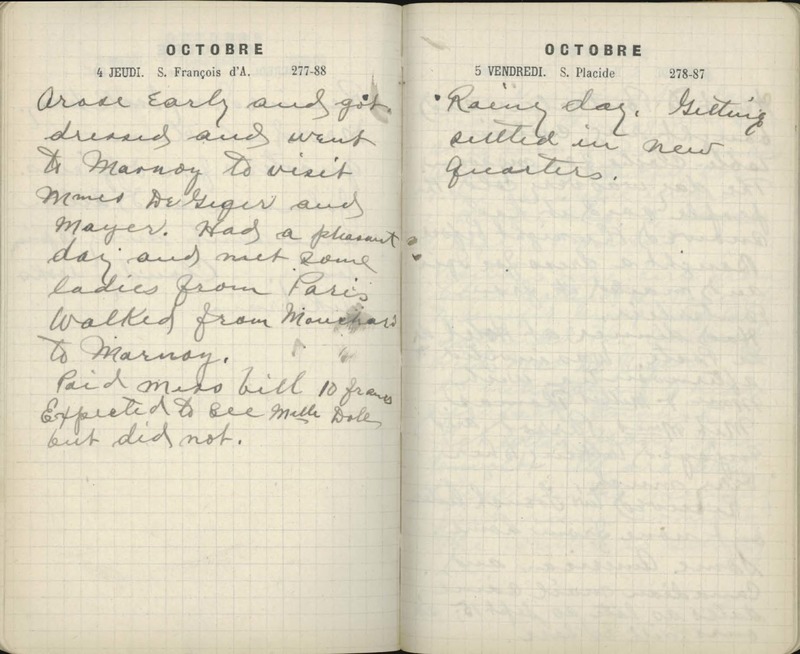 OCTOBRE
4 JEUDI. S. François d'A. 277-88
Arose Early and got
dressed and went
to Marnoy to visit
Mmes De Geger and
Mayer. Had a pleasant
day and met some
ladies from Paris
Walked from Mouchard
to Marnoy.
Paid mess bill 10 francs
Expected to see Melle Dole
but did not.
OCTOBRE
5 VENDREDI. S. Placide 278-87
Rainy day. Getting
settled in new
quarters.